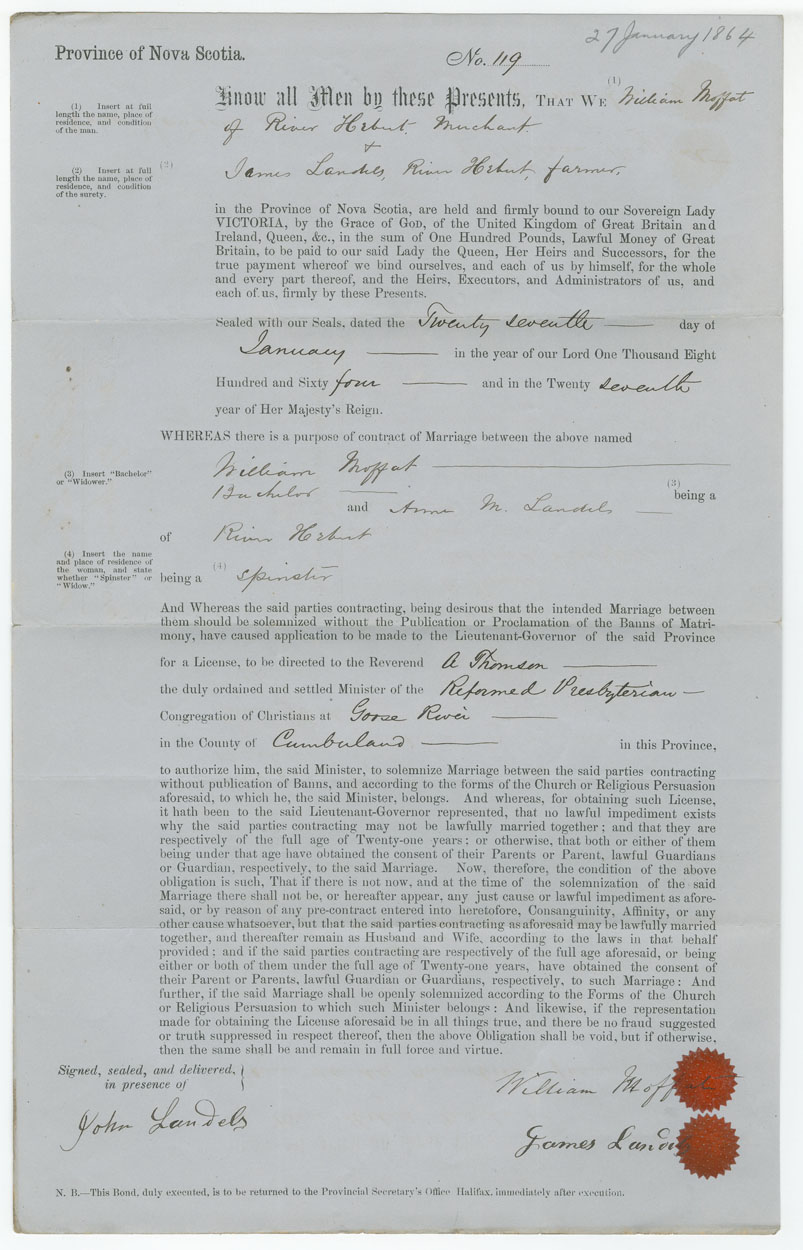 27 January 1864
Province of Nova Scotia.
No. 119
Know all Men by these Presents, THAT WE (1) William Moffat
of River Hebert, Merchant
+
(2) James Landels, River Hebert, farmer,
(1) Insert at full
length the name, place of
residence, and condition
of the man.
(2) Insert at full
length the name, place of
residence, and condition
of the surety.
in the Province of Nova Scotia, are held and firmly bound to our Sovereign Lady
VICTORIA, by the Grace of GOD, of the United Kingdom of Great Britain and
Ireland, Queen, &c., in the sum of One Hundred Pounds, Lawful Money of Great
Britain, to be paid to our said Lady the Queen, Her Heirs and Successors, for the
true payment whereof we bind ourselves, and each of us by himself, for the whole
and every part thereof, and the Heirs, Executors, and Administrators of us, and
each of us, firmly by these Presents.
Sealed with our Seals, dated the Twenty seventh day of
January in the year of our Lord One Thousand Eight
Hundred and Sixty four and in the Twenty seventh
year of Her Majesty's Reign.
WHEREAS there is a purpose of contract of Marriage between the above named
William Moffat
(3) Insert "Bachelor"
or "Widower."
Bachelor (3) being a
and Anna M. Landels
of River Hebert
(4) Insert the name
and place of residence of
the woman, and state
whether "Spinster" or
"Widow."
being a (4) Spinster
And Whereas the said parties contracting, being desirous that the intended Marriage between
them should be solemnized without the Publication or Proclamation of the Banns of Matri-
mony, have caused application to be made to the Lieutenant-Governor of the said Province
for a License, to be directed to the Reverend A Thomson
the duly ordained and settled Minister of the Reformed Presbyterian
Congregation of Christians at Goose River
in the County of Cumberland in this Province,
to authorize him, the said Minister, to solemnize Marriage between the said parties contracting
without publication of Banns, and according to the forms of the Church or Religious Persuasion
aforesaid, to which he, the said Minister, belongs. And whereas, for obtaining such License,
it hath been to the said Lieutenant-Governor represented, that no lawful impediment exists
why the said parties contracting may not be lawfully married together; and that they are
respectively of the full age of Twenty-one years: or otherwise, that both or either of them
being under that age have obtained the consent of their Parents or Parent, lawful Guardians
or Guardian, respectively, to the said Marriage. Now, therefore, the condition of the above
obligation is such, That if there is not now, and at the time of the solemnization of the said
Marriage there shall not be, or hereafter appear, any just cause or lawful impediment as afore-
said, or by reason of any pre-contract entered into heretofore, Consanguinity, Affinity, or any
other cause whatsoever, but that the said parties contracting as aforesaid may be lawfully married
together, and thereafter remain as Husband and Wife, according to the laws in that behalf
provided; and if the said parties contracting are respectively of the full age aforesaid, or being
either or both of them under the full age of Twenty-one years, have obtained the consent of
their Parent or Parents, lawful Guardian or Guardians, respectively, to such Marriage: And
further, if the said Marriage shall be openly solemnized according to the Forms of the Church
or Religious Persuasion to which such Minister belongs: And likewise, if the representation
made for obtaining the License aforesaid be in all things true, and there be no fraud suggested
or truth suppressed in respect thereof, then the above Obligation shall be void, but if otherwise,
then the same shall be and remain in full force and virtue.
Signed, sealed, and delivered,
in presence of
William Moffat
John Landels
James Landels
N. B.—This Bond, duly executed, is to be returned to the Provincial Secretary's Office Halifax, immediately after execution.